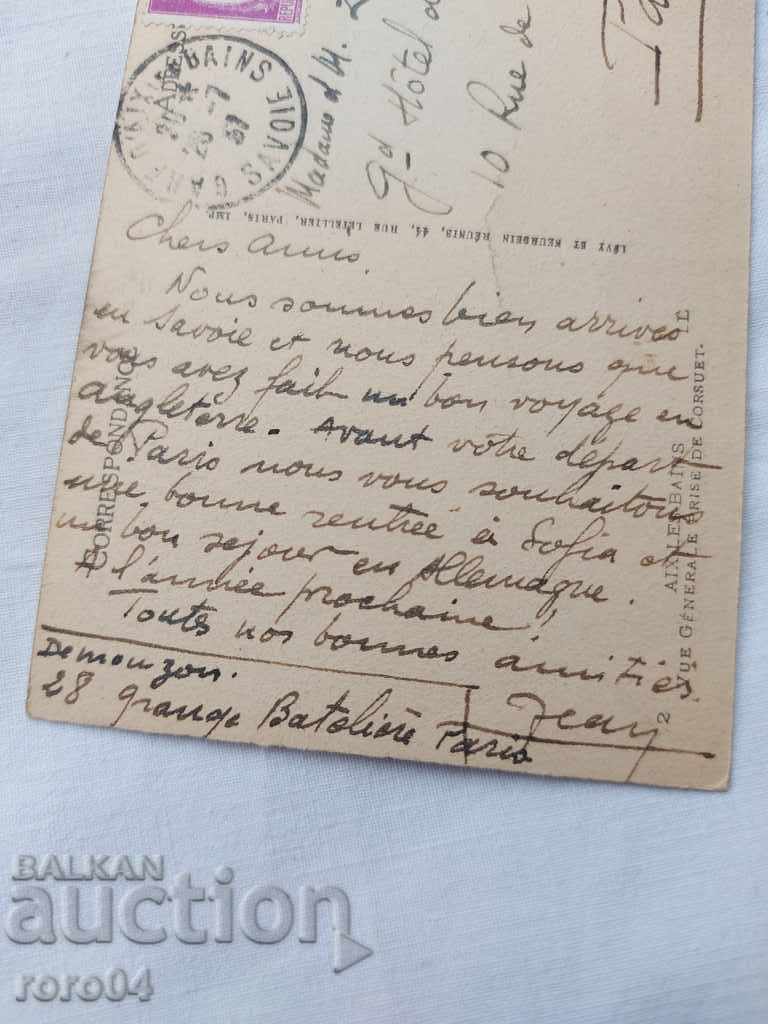 RÉPU
ADRESSE
BAINS
SAVOIE
20
-7
37
Madame & M.
Gd Hôtel d
10 Rue de
Pa
LÉVY ET NEURDEIN RÉUNIS, 44, RUE LETELLIER, PARIS, IMP.
CORRESPONDANCE
Chers amis.
Nous sommes bien arrivés
en Savoie et nous pensons que
vous avez fait un bon voyage en
Angleterre. Avant votre départ
de Paris nous vous souhaitons
une bonne rentrée à Sofia et
un bon séjour en Allemagne.
A l'année prochaine!
Toutes nos bonnes amitiés.
Jean
Demouzon.
28 grange Batelière Paris
2 AIX-LES-BAINS
VUE GÉNÉRALE PRISE DE CORSUET.
BALKAN
auction
roro04